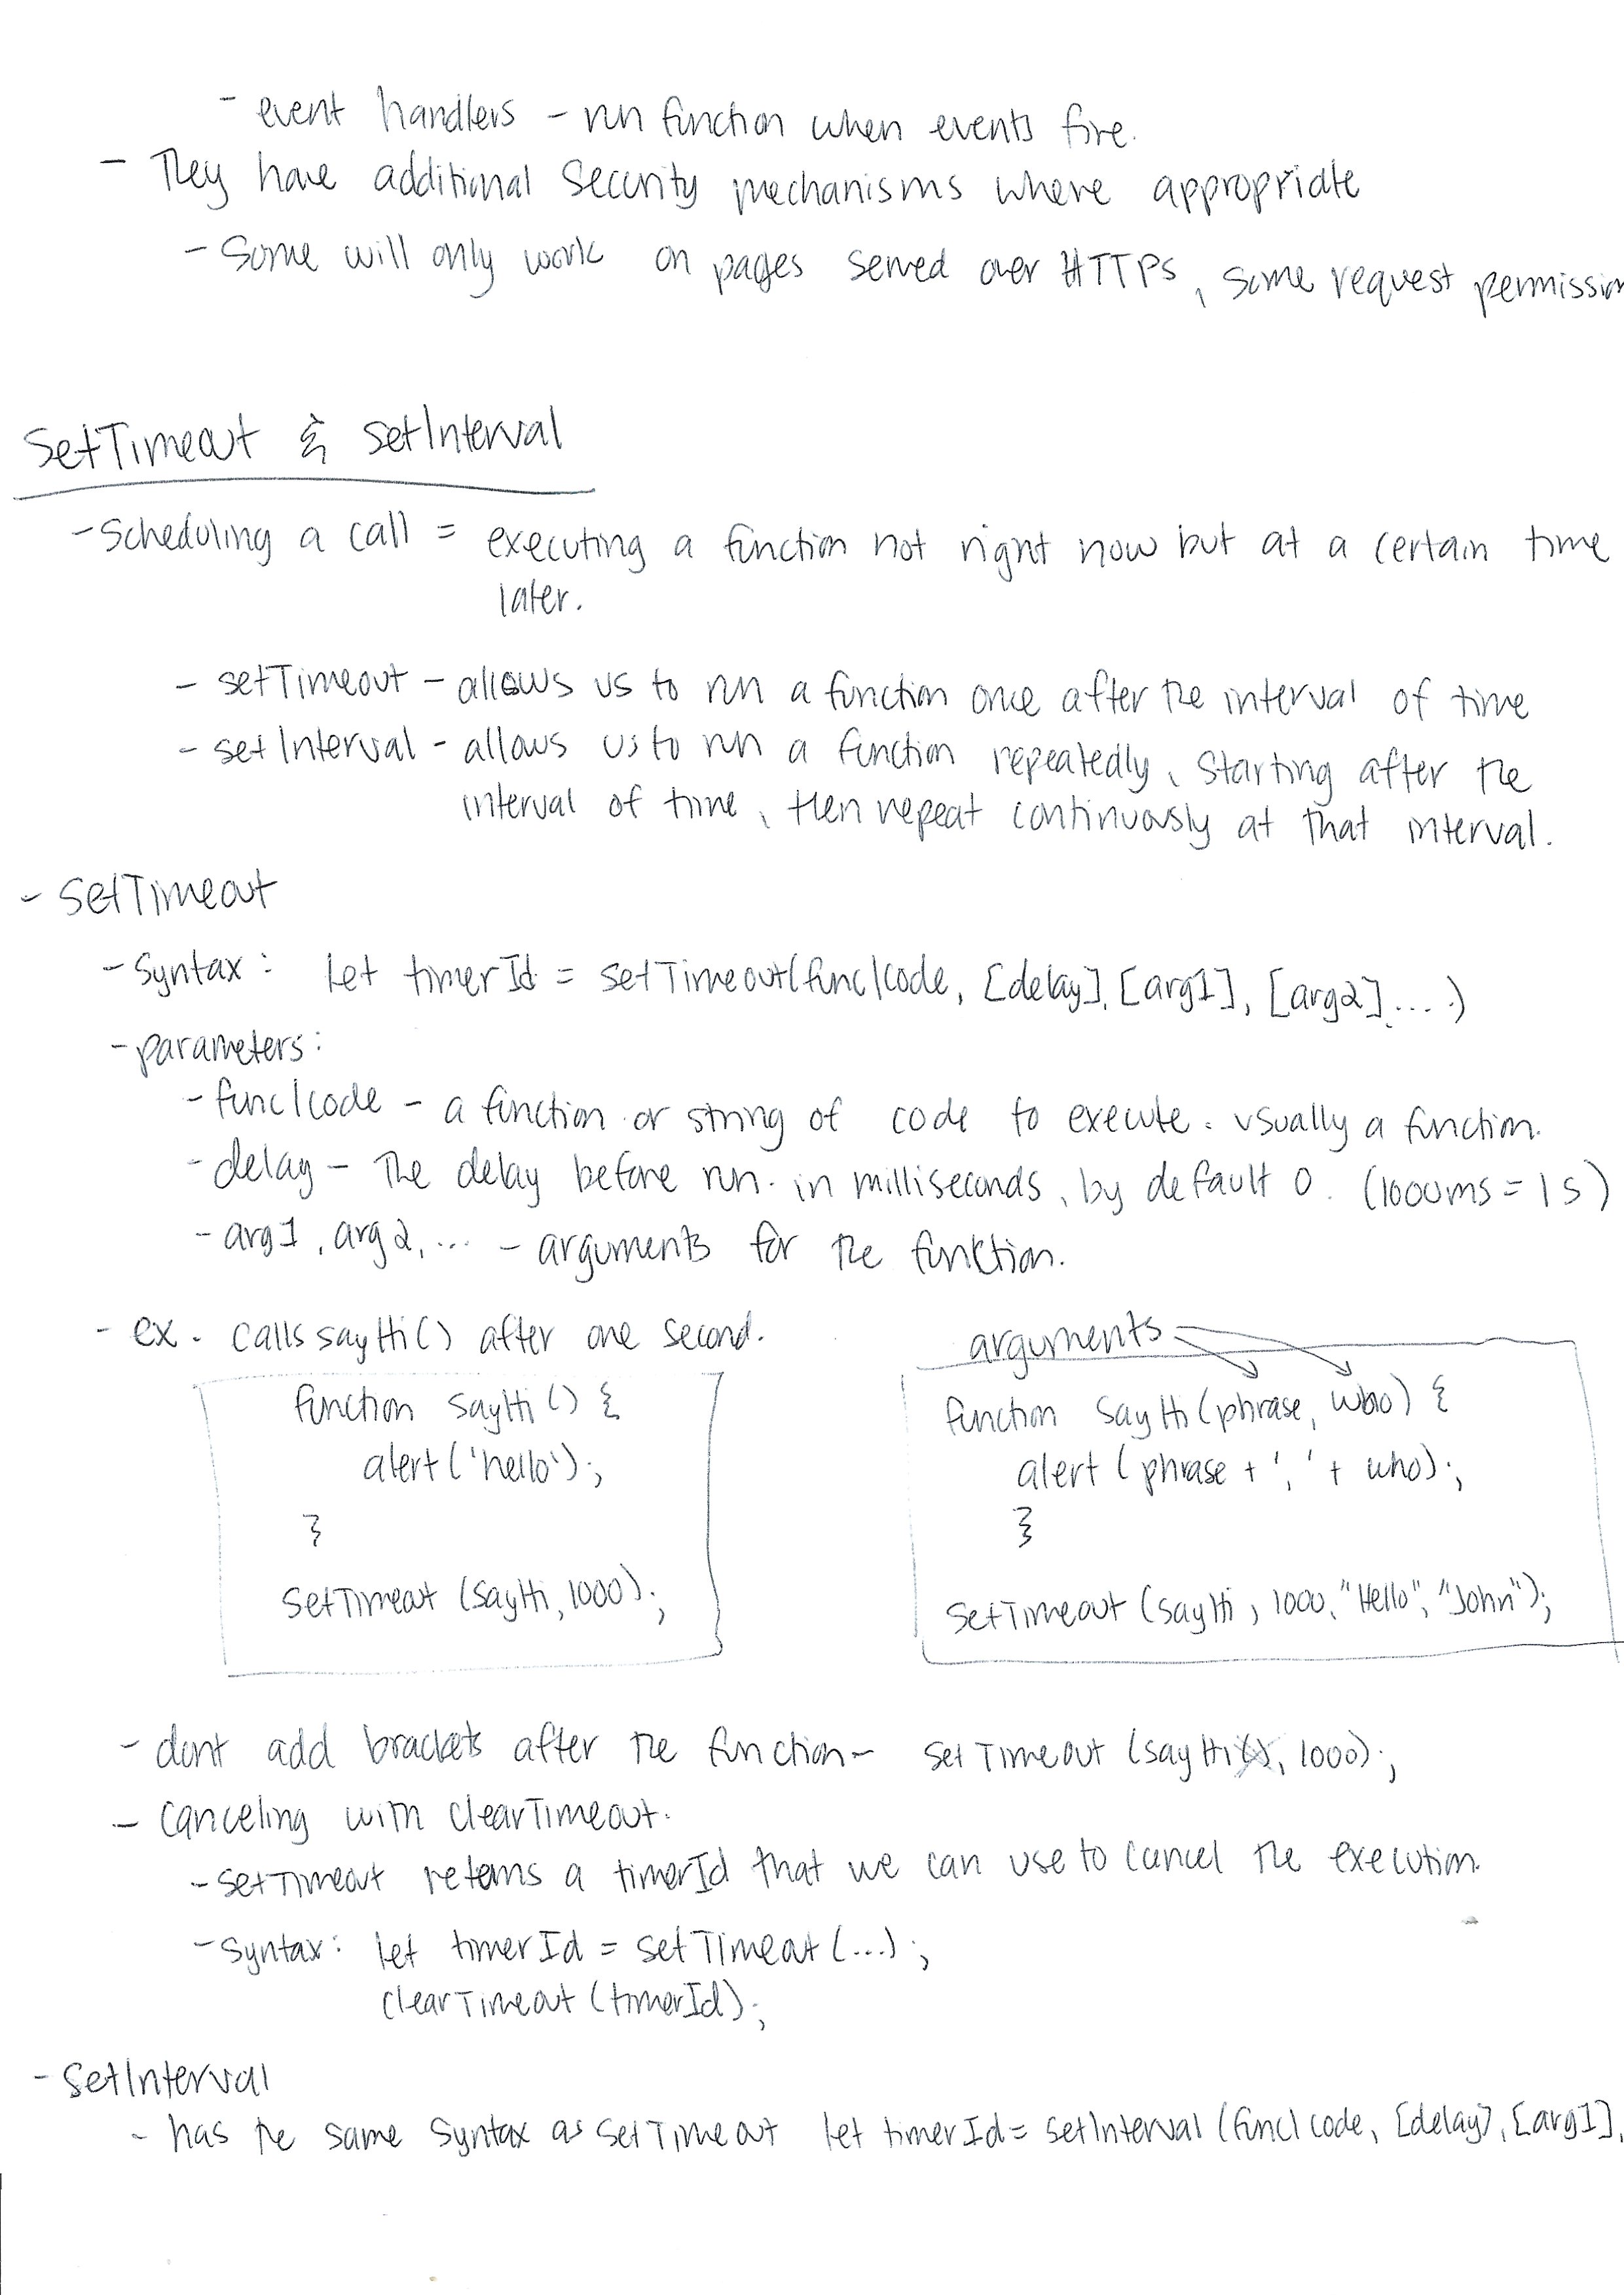 - event handlers - run function when events fire.
- They have additional security mechanisms where appropriate
- Some will only work on pages served over HTTPS, some request permission
SetTimeout & setInterval
- Scheduling a call = executing a function not right now but at a certain time
later.
- setTimeout - allows us to run a function once after the interval of time
- setInterval - allows us to run a function repeatedly, starting after the
interval of time, then repeat continuously at that interval.
- SetTimeout
- Syntax: let timerId = setTimeout(func|code, [delay], [arg1], [arg2]....)
- parameters:
- func|code - a function or string of code to execute. usually a function.
- delay - The delay before run. in milliseconds, by default 0. (1000ms = 1s)
- arg1, arg2, ... - arguments for the function.
- ex. calls sayHi() after one second.
function sayHi() {
alert('hello');
}
SetTimeout (SayHi, 1000);
arguments
function SayHi(phrase, who) {
alert (phrase + ', ' + who);
}
SetTimeout (sayHi, 1000, "Hello", "John");
- dont add brackets after the function - setTimeout (sayHi(), 1000);
- Canceling with clearTimeout.
- SetTimeout returns a timerId that we can use to cancel the execution.
- Syntax: let timerId = setTimeout(...);
clearTimeout (timerId);
- SetInterval
- has the same syntax as SetTimeout let timerId = setInterval (func|code, [delay], [arg1],